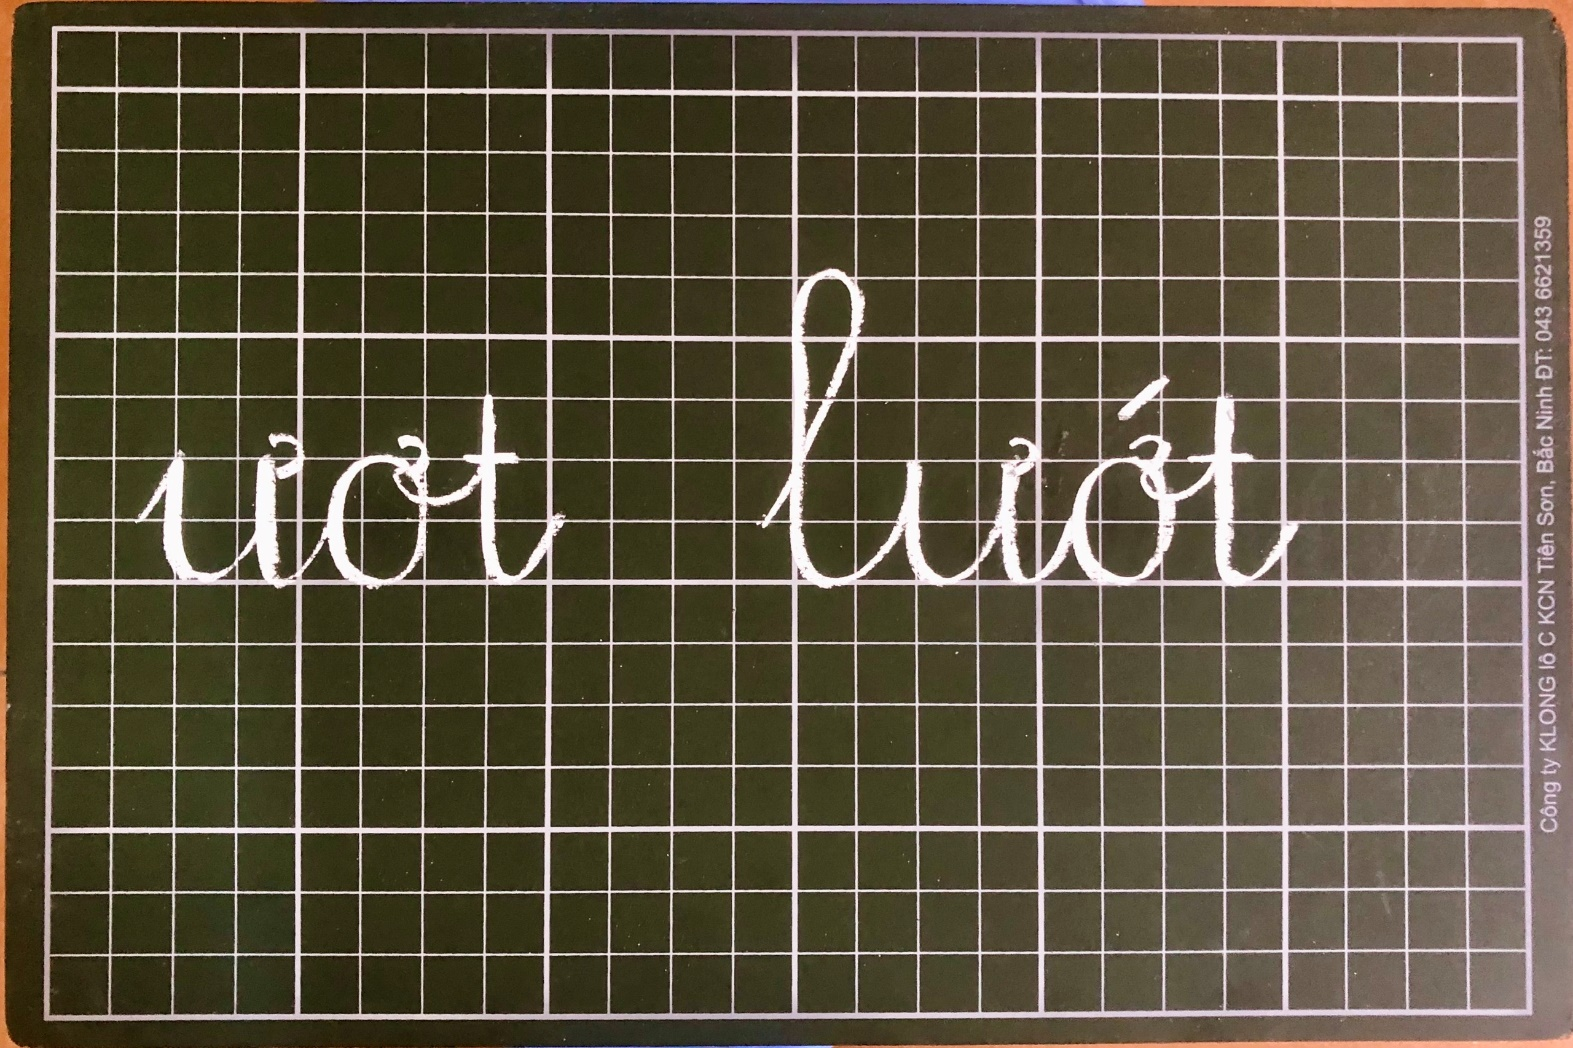 ươt lướt
Công ty KLONG lô C KCN Tiên Sơn, Bắc Ninh ĐT: 043 6621359